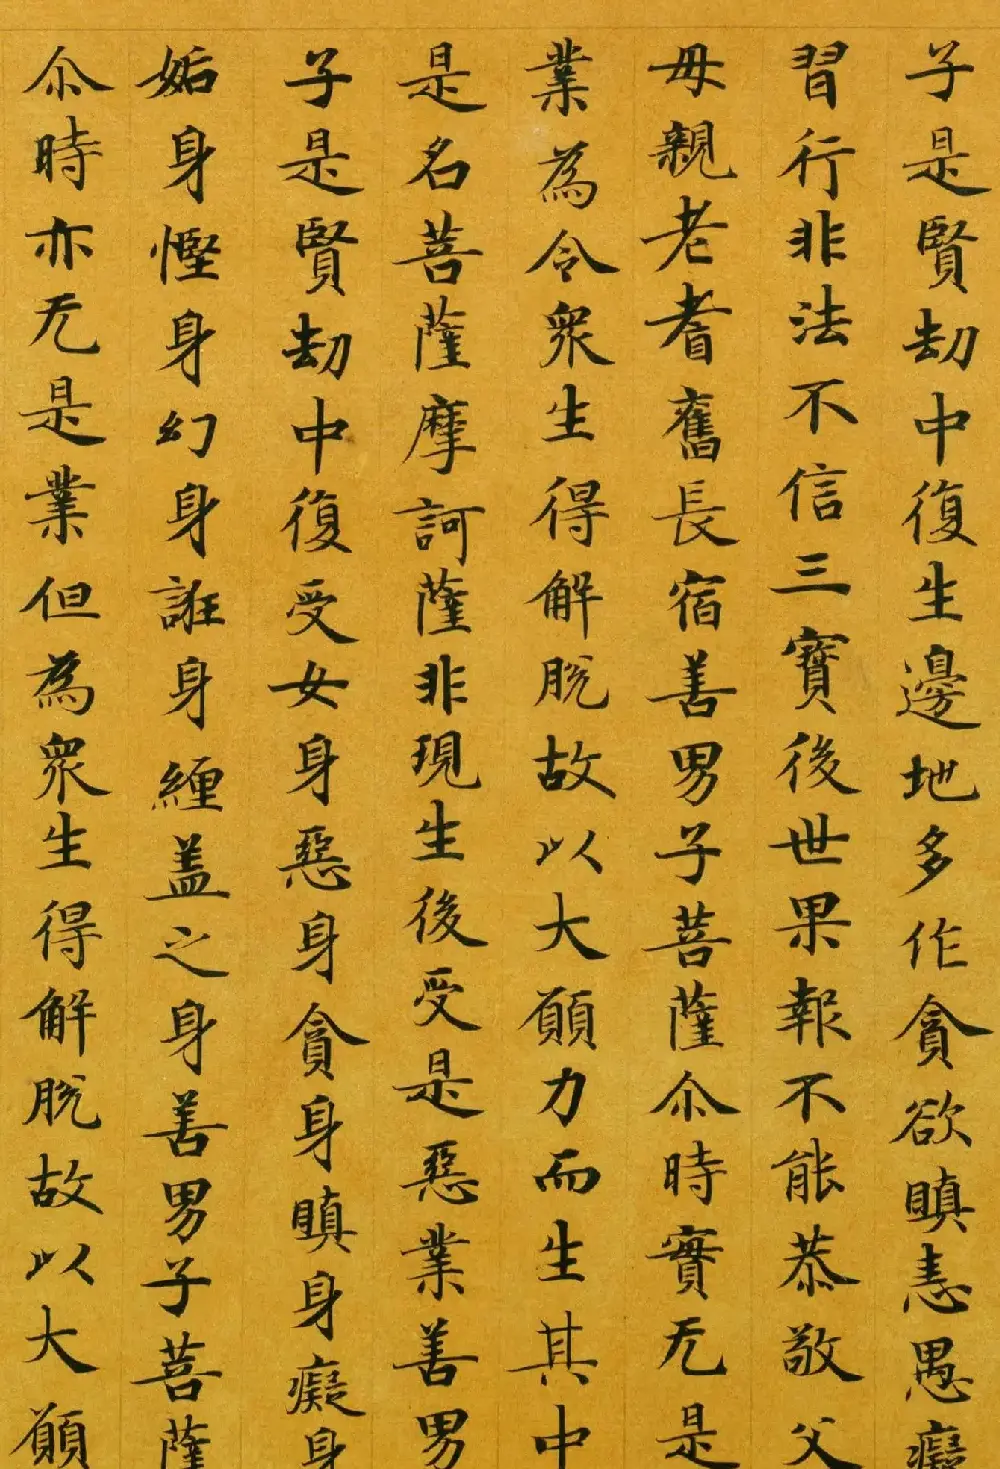 子是賢劫中復生邊地多作貪欲瞋恚愚癡
習行非法不信三寶後世果報不能恭敬父
母親老耆舊長宿善男子菩薩尒時實无是
業為令衆生得解脫故以大願力而生其中
是名菩薩摩訶薩非現生後受是惡業善男
子是賢劫中復受女身惡身貪身瞋身癡身
妬身慳身幻身誑身纏盖之身善男子菩薩
尒時亦无是業但為衆生得解脫故以大願